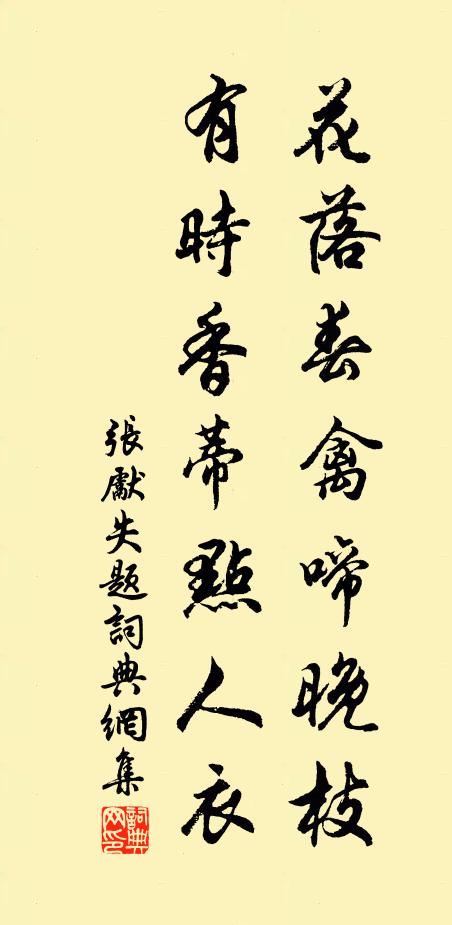 花落春禽啼晚枝
有時香蒂點人衣
張獻失題詞典網集
詞典網印